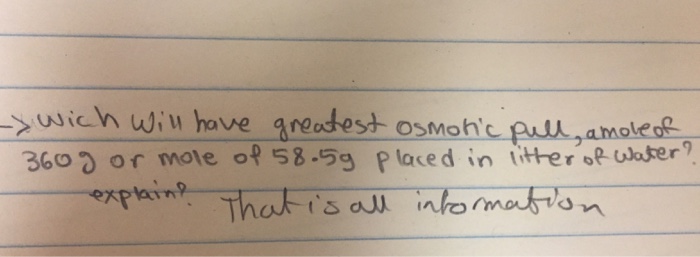 -> wich will have greatest osmotic pull, a mole of
360g or mole of 58.5g placed in litter of water?
explain? That is all information